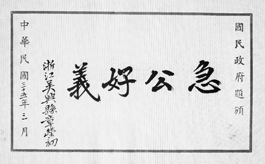 國民政府題頒
急公好義
浙江吳興縣章榮初
中華民國三十五年三月